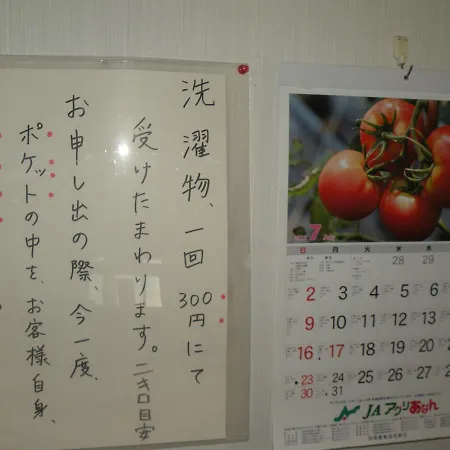 洗濯物、一回300円にて
受けたまわります。二キロ目安
お申し出の際、今一度、
ポケットの中を、お客様自身、
7
日 月 火 水 木
28 29
2 3 4 5 6
9 10 11 12 13
16 17 18 19 20
23 24 25 26 27
30 31
JAアグリあなん